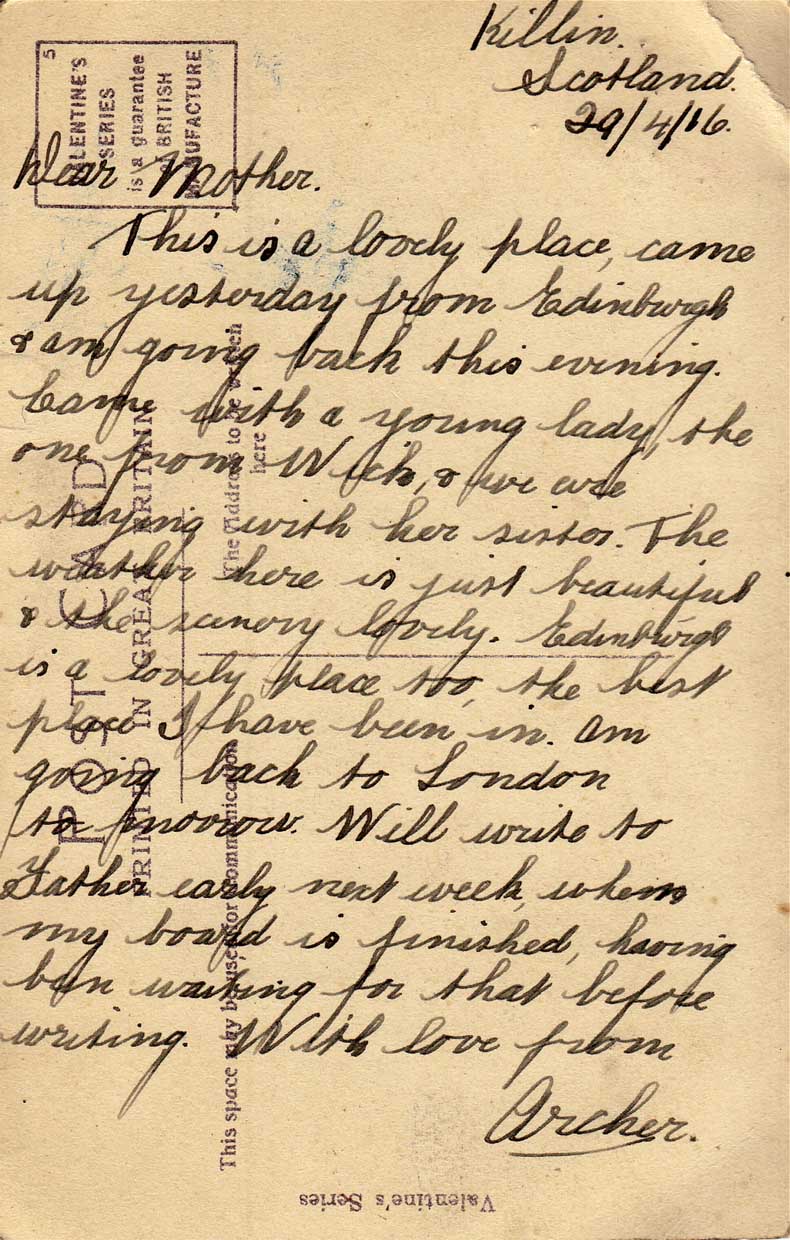 Killin.
Scotland.
29/4/16.
Dear Mother.
This is a lovely place, came
up yesterday from Edinburgh
& am going back this evening.
Came with a young lady, the
one from Wick, & we are
staying with her sister. The
weather here is just beautiful
& the scenery lovely. Edinburgh
is a lovely place too, the best
place I have been in. Am
going back to London
to-morrow. Will write to
Father early next week, when
my board is finished, having
been waiting for that before
writing. With love from
Archer.
5
VALENTINE'S
SERIES
is a guarantee
of BRITISH
MANUFACTURE
POST CARD
PRINTED IN GREAT BRITAIN
This space may be used for communication
The Address to be written
here
Valentine's Series